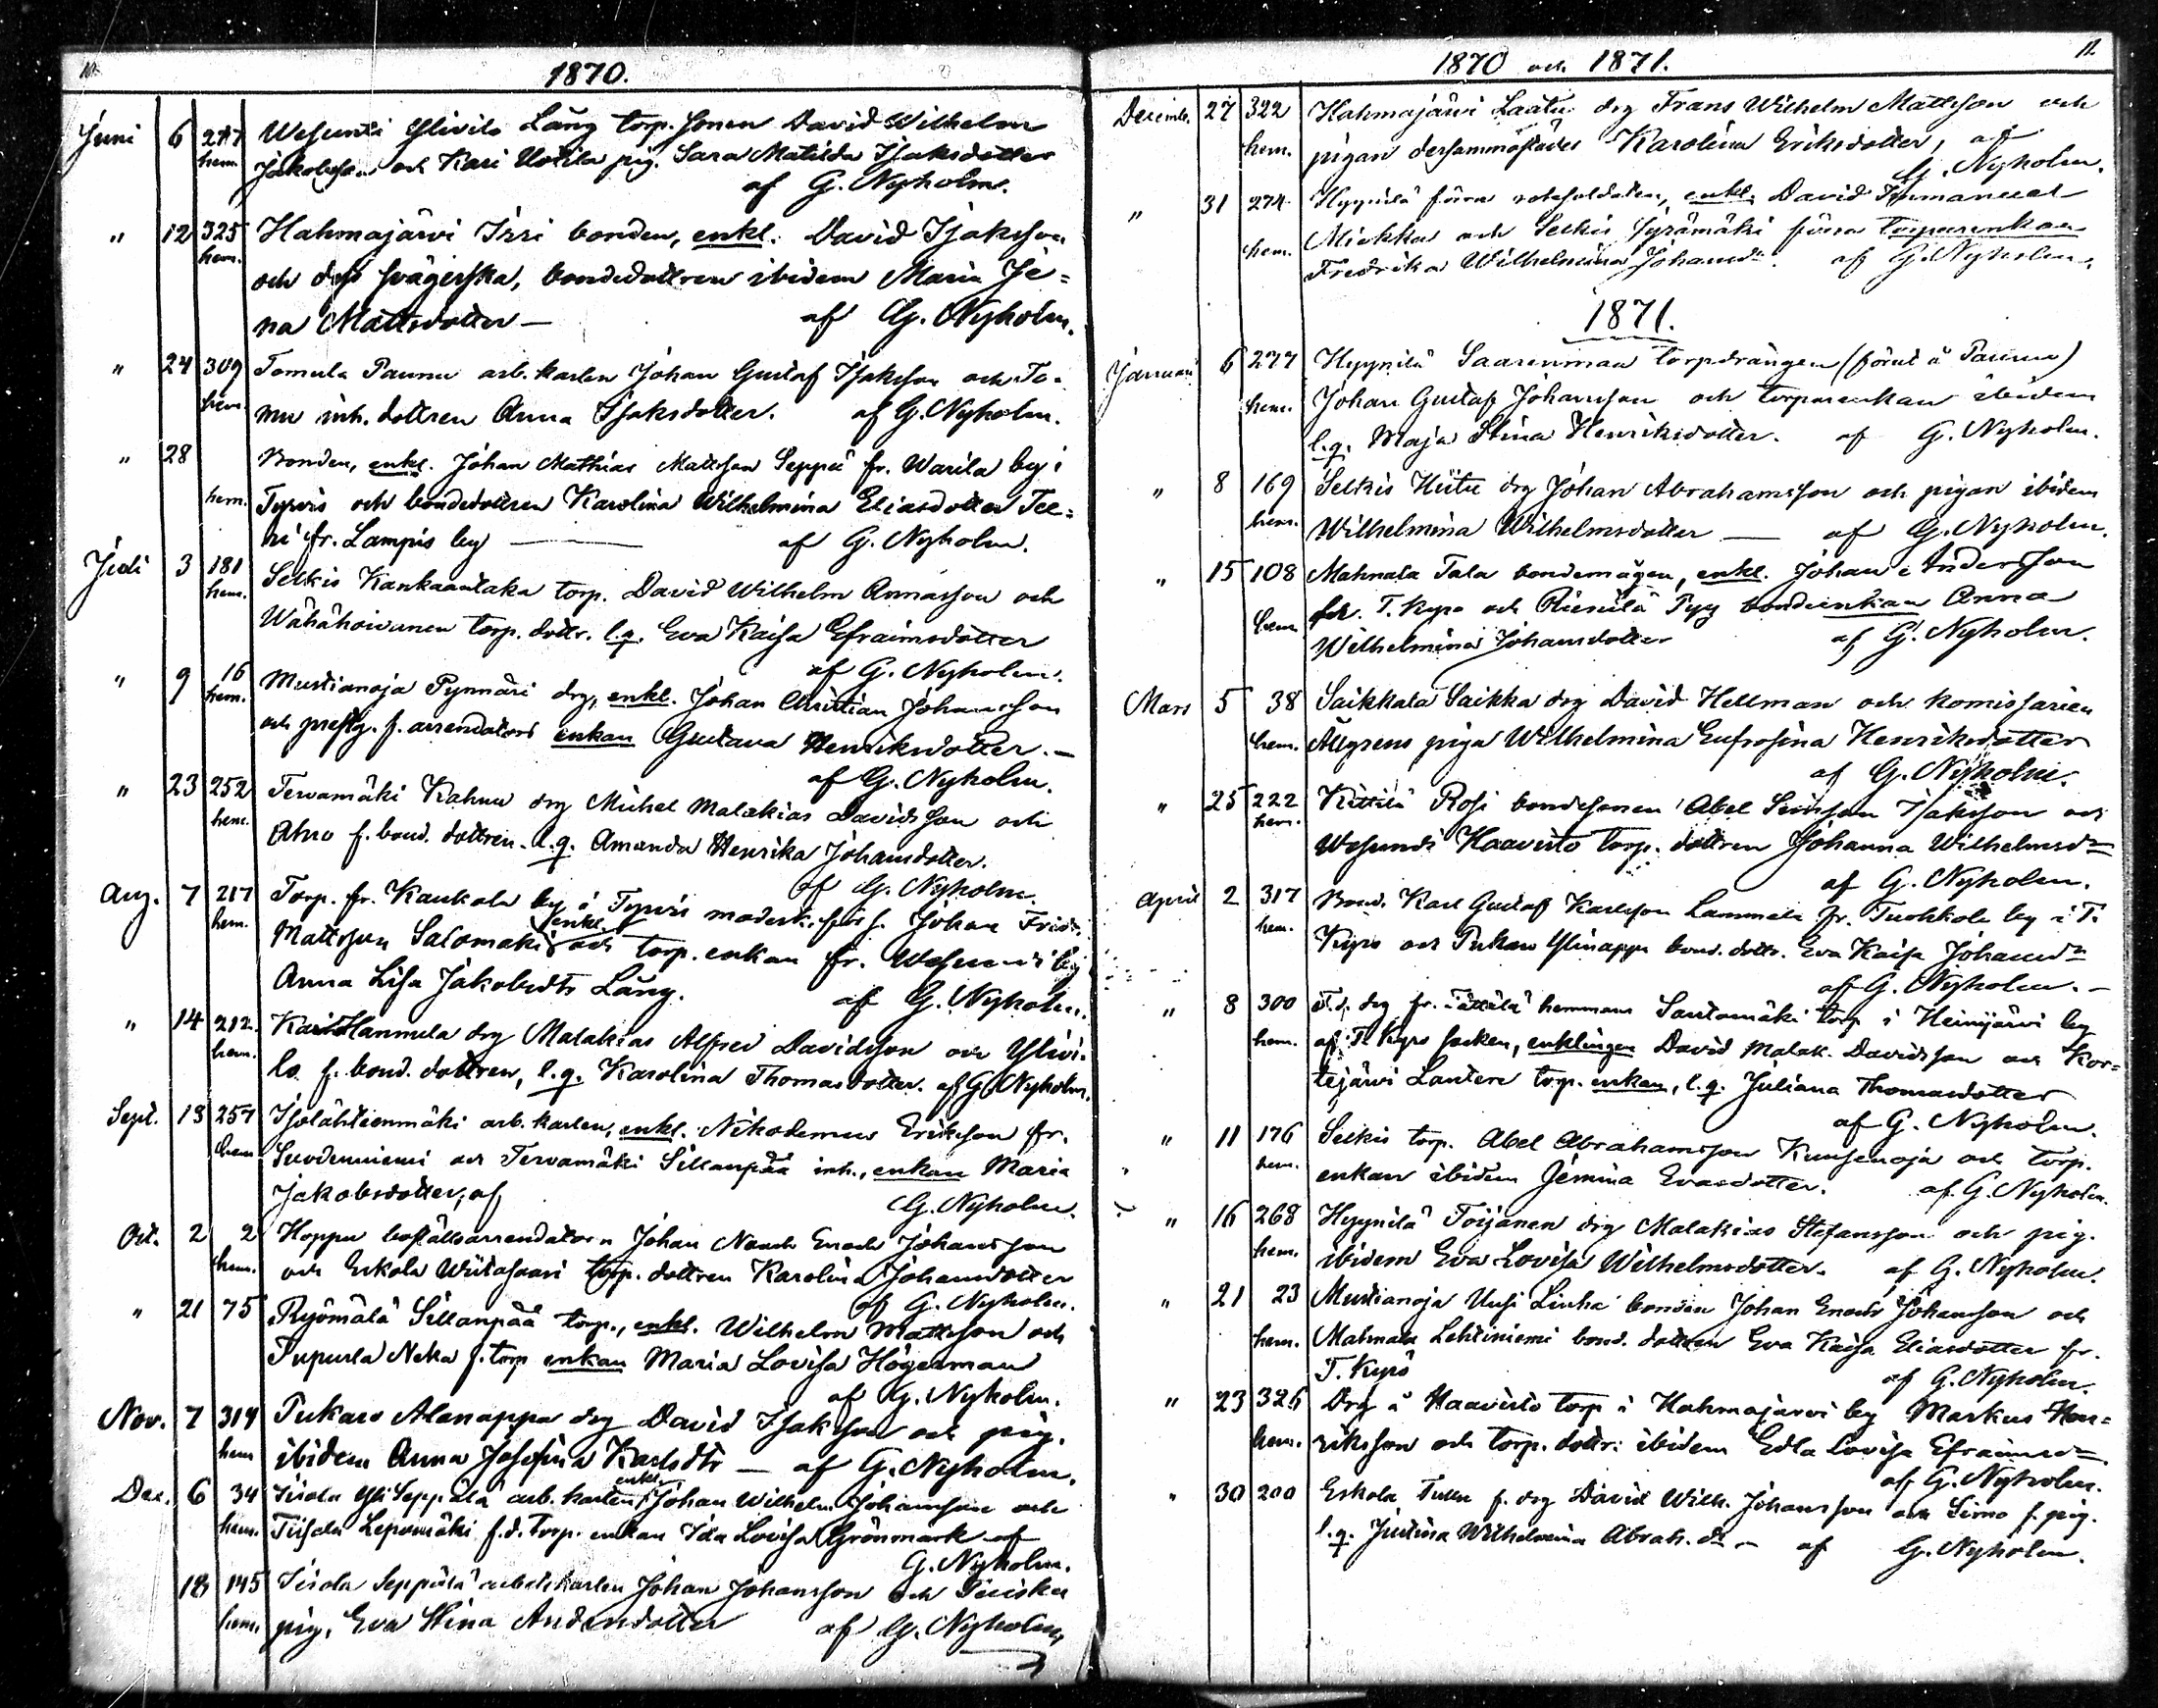 10.
1870.
Juni 6 277 Wesunti Ylivilo Lång torp. sonen David Wilhelm
hem. Jakobsson och Kari Uotila pig. Sara Matilda Isaksdotter
af G. Nyholm.
" 12 325 Hahmajärvi Irri bonden, enkl. David Isaksson
hem. och dess svägerska, bondedottren ibidem Maria Je=
na Mattsdotter — af G. Nyholm.
" 24 309 Tomula Paunu arb. karlen Johan Gustaf Isaksson och To-
hem. mu inh. dottren Anna Isaksdotter. af G. Nyholm.
" 28 Bonden, enkl. Johan Mathias Mattsson Seppä fr. Warila by i
hem. Tyrvis och bondedottren Karolina Wilhelmina Eliasdotter Tee=
ri fr. Lampis by — af G. Nyholm.
Juli 3 181 Selkis Kankaantaka torp. David Wilhelm Annasson och
hem. Wähähoivanen torp. dottr. l.q. Eva Kaisa Efraimsdotter
af G. Nyholm.
" 9 16 Mustianoja Pynnäri drg, enkl. Johan Christian Johansson
hem. och prestg. f. arrendators enkan Gustava Henriksdotter. —
af G. Nyholm.
" 23 252 Tervamäki Kahnu drg Michel Malakias Davidsson och
hem. Ahro f. bond. dottren l.q. Amanda Henrika Johansdotter.
af G. Nyholm.
Aug. 7 217 Torp. fr. Kaukola by i Tyrvis moderk. förs. Johan Fridr.
hem. Mattsson Salomäki enkl. och torp. enkan fr. Wesunti by
Anna Lisa Jakobsdtr Lång. af G. Nyholm.
" 14 212 Kari Hannula drg Malakias Alfred Davidsson och Ylivi-
hem. lo f. bond. dottren, l.q. Karolina Thomasdotter. af G. Nyholm.
Sept. 13 257 Isolähteenmäki arb. karlen, enkl. Nikodemus Eriksson fr.
hem Suodenniemi och Tervamäki Sillanpää inh., enkan Maria
Jakobsdotter, af G. Nyholm.
Oct. 2 2 Hoppu boställsarrendatorn Johan Noach Enoch Johansson
hem. och Eskola Wiitasaari torp. dottren Karolina Johansdotter
af G. Nyholm.
" 21 75 Ryömälä Sillanpää torp., enkl. Wilhelm Mattsson och
Pupurla Neka f. torp enkan Maria Lovisa Högerman
af G. Nyholm.
Nov. 7 319 Pukara Alanappa drg David Isaksson och pig.
hem ibidem Anna Josefina Karlsdtr — af G. Nyholm.
Dec. 6 34 Sirola Yli Seppälä arb. karlen, enkl. Johan Wilhelm Johansson och
hem. Tiisala Lepomäki f.d. torp. enkan Ida Lovisa Grönmark af
G. Nyholm.
18 145 Sirola Seppälä arbetskarlen Johan Johansson och
hem. pig. Eva Stina Andersdotter af G. Nyholm.
11.
1870 och 1871.
Decemb. 27 322 Hahmajärvi Laatu drg Frans Wilhelm Mattsson och
hem. pigan dersammastädes Karolina Eriksdotter, af
G. Nyholm.
" 31 274 Hyynilä förra rotesoldaten, enkl. David Immanuel
hem. Miekka och Selkis Syrämäki förra torparenkan
Fredrika Wilhelmina Johansdr. af G. Nyholm.
1871.
Januari 6 277 Hyynilä Saarenmaa torpdrängen (förut å Paunu)
hem. Johan Gustaf Johansson och torparenkan ibidem
l.q. Maja Stina Henriksdotter. af G. Nyholm.
" 8 169 Selkis Hiitu drg Johan Abrahamsson och pigan ibidem
hem. Wilhelmina Wilhelmsdotter — af G. Nyholm.
" 15 108 Mahnala Tala bondemågen, enkl. Johan Andersson
hem. fr. T. Kyro och Pyy bondeenkan Anna
Wilhelmina Johansdotter af G. Nyholm.
Mars 5 38 Saikkala Saikka drg David Hellman och komissarien
hem. Ällgrens piga Wilhelmina Eufrosina Henriksdotter
af G. Nyholm.
" 25 222 Kittilä Rosi bondesonen Abel Isaksson och
hem. Wesunti Haavisto torp. dottren Johanna Wilhelmsdr
af G. Nyholm.
April 2 317 Bond. Karl Gustaf Karlsson Lammela fr. Tuokkola by i T.
hem. Kyro och Pukara Ylinappa bond. dottr. Eva Kaisa Johansdr
af G. Nyholm. —
" 8 300 F.d. drg fr. hemmans Santamäki torp i Heinijärvi by
hem. af T. Kyro socken, enklingen David Malak. Davidsson och Kor=
tejärvi Lantere torp. enkan, l.q. Juliana Thomasdotter
af G. Nyholm.
" 11 176 Selkis torp. Abel Abrahamsson Kunsenoja och torp.
hem. enkan ibidem Jemina Evasdotter. af G. Nyholm.
" 16 268 Hyynilä Toijanen drg Malakias Stefansson och pig.
hem. ibidem Eva Lovisa Wilhelmsdotter. af G. Nyholm.
" 21 23 Mustianoja Uusi Linha bonden Johan Enoch Johansson och
hem. Mahnala Lehtiniemi bond. dottren Eva Kaisa Eliasdotter fr.
T. Kyrö af G. Nyholm.
" 23 326 Drg å Haavisto torp i Hahmajärvi by Markus Hen=
hem. riksson och torp. dottr. ibidem Edla Lovisa Efraimsdr
af G. Nyholm.
" 30 200 Eskola Tulu f. drg David Wilh. Johansson och Simo f. pig.
l.q. Justina Wilhelmina Abrah. dr — af G. Nyholm.